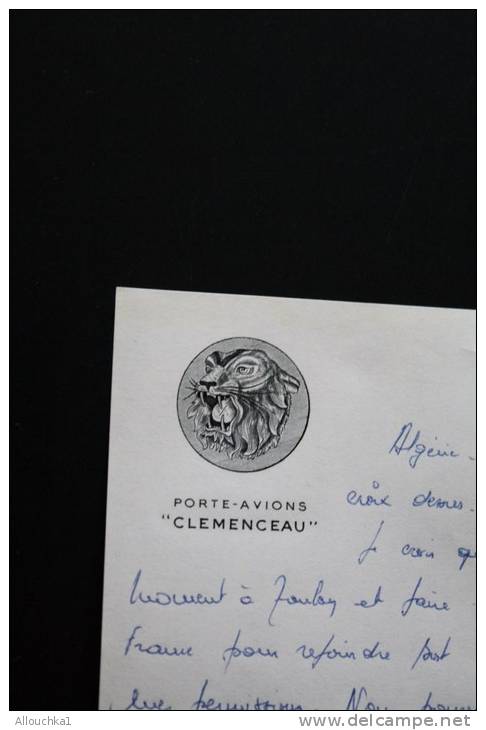 PORTE-AVIONS
"CLEMENCEAU"
Algérie.
croix dessus.
Je crois
moment à Toulon et faire
France pour rejoindre
permission. Nous
Allouchka1
www.delcampe.net